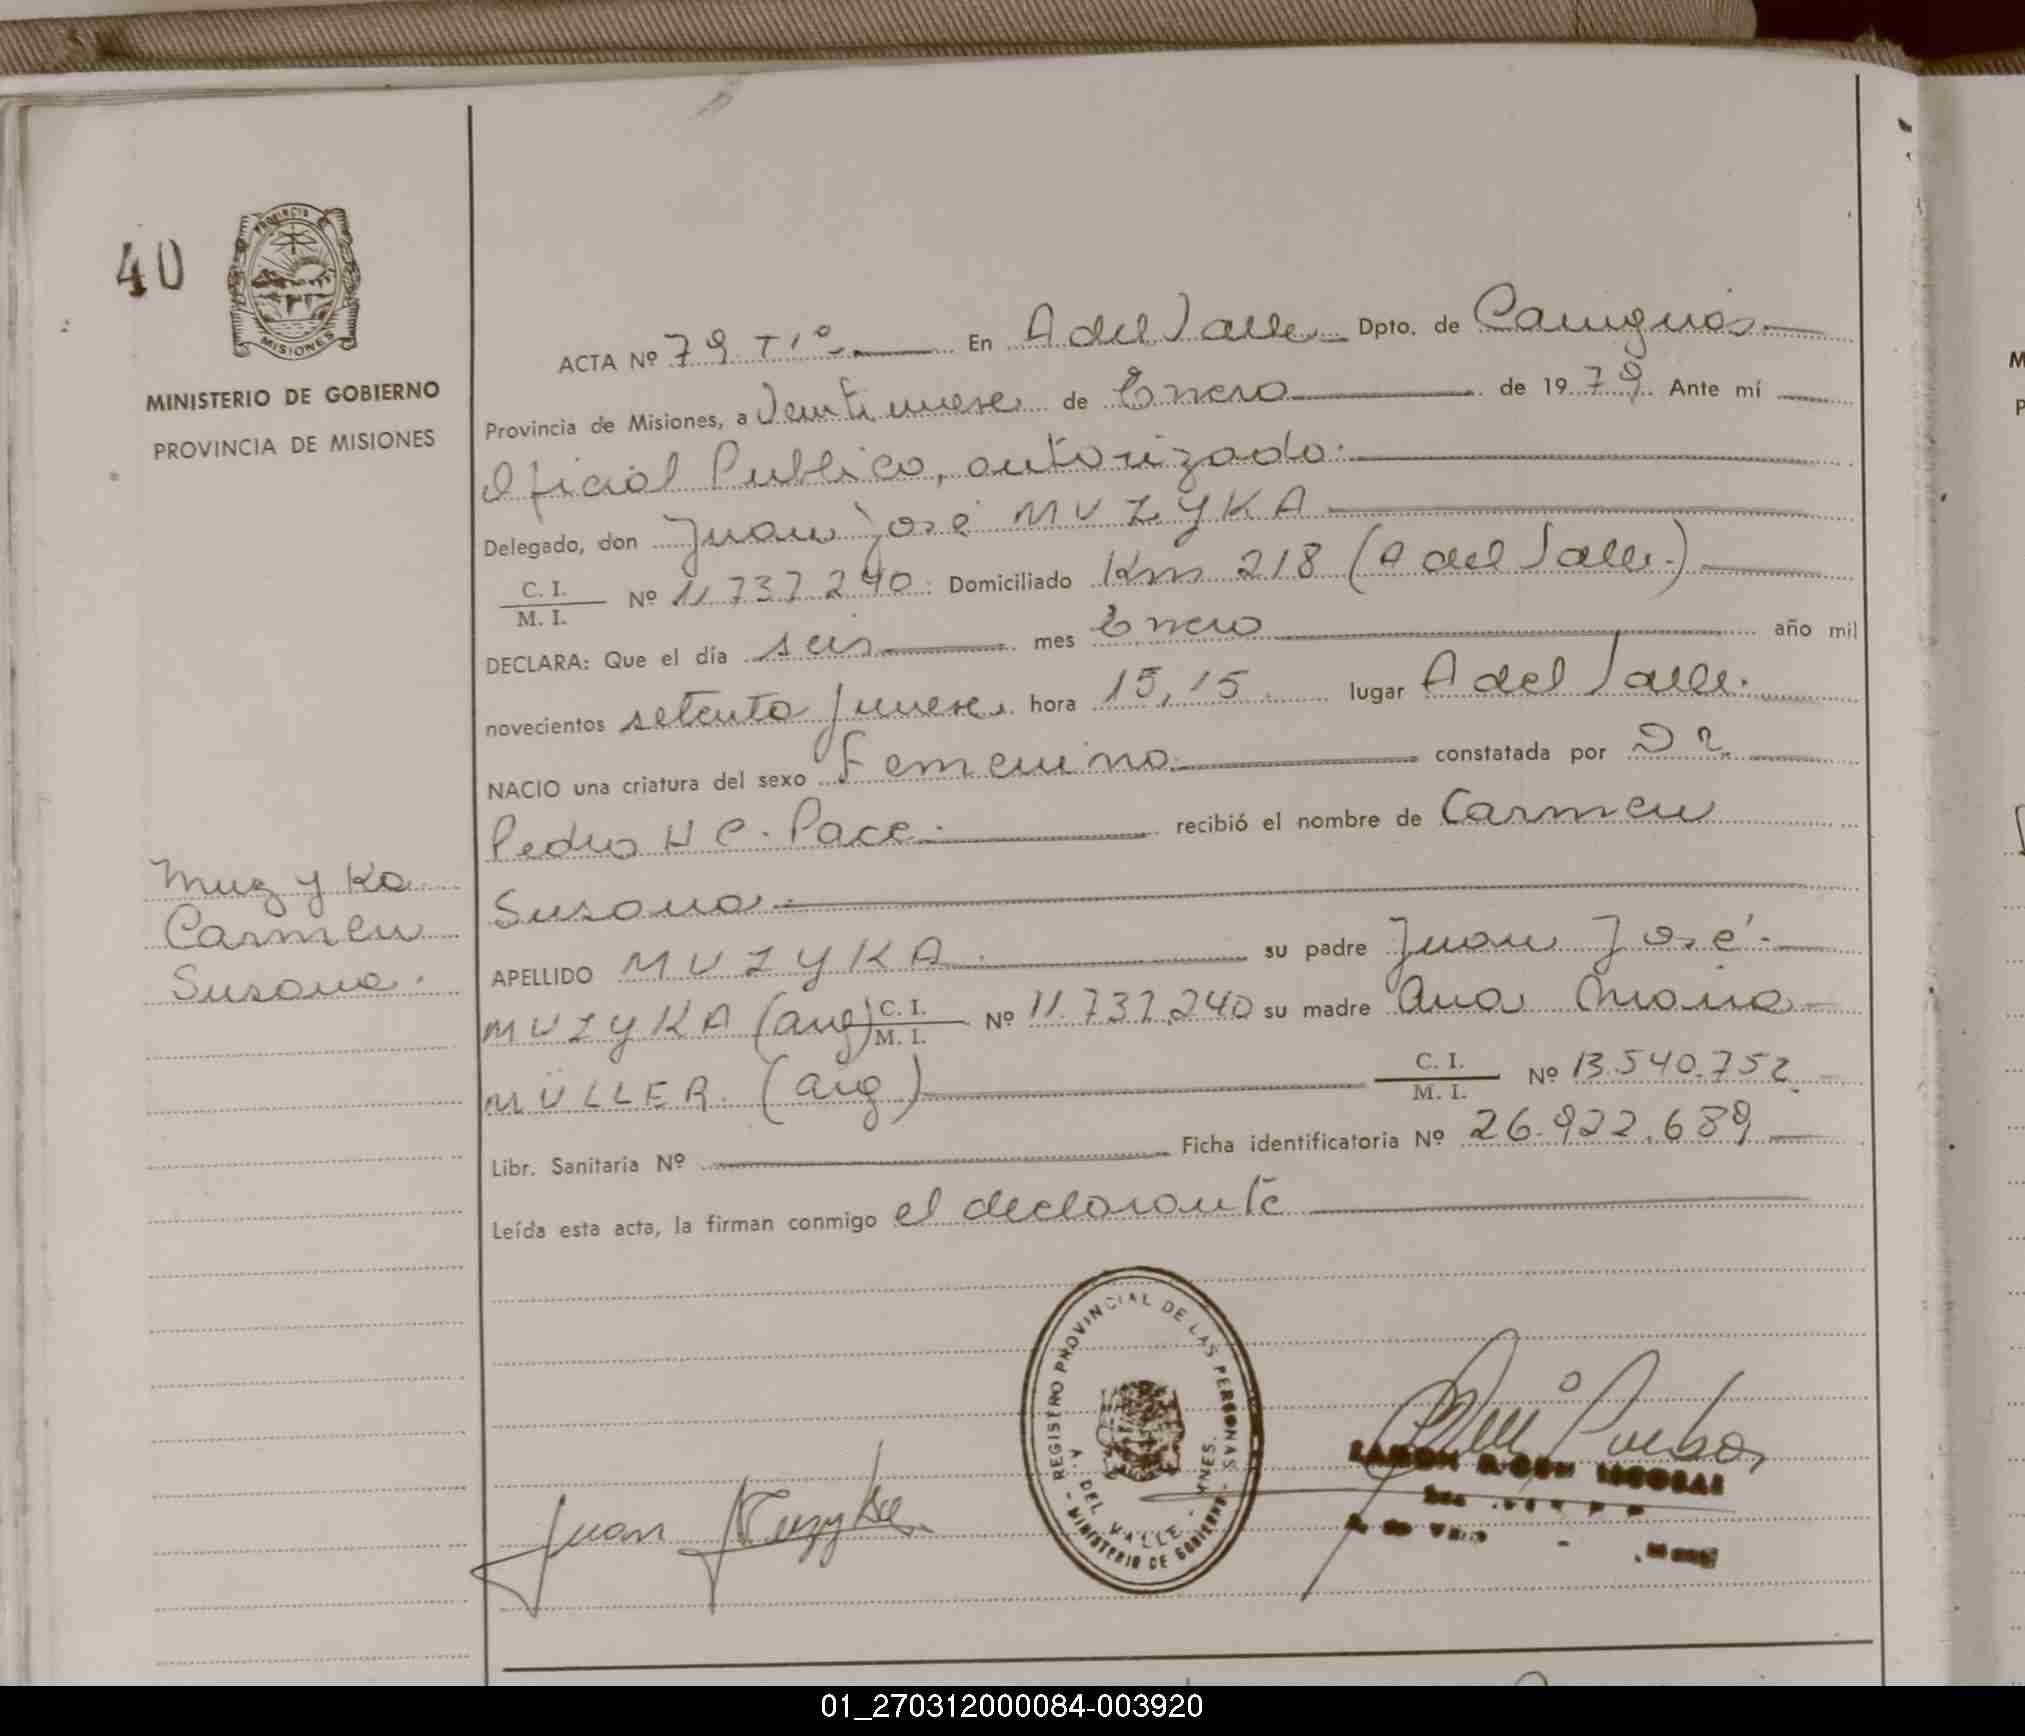 40
PROVINCIA
MISIONES
MINISTERIO DE GOBIERNO
PROVINCIA DE MISIONES
Muzyka
Carmen
Susana.
ACTA Nº 79 T 1º En A del Valle Dpto. de Cainguás
Provincia de Misiones, a Veintinueve de Enero de 1979 Ante mí
Oficial Publico, autorizado.
Delegado, don Juan José MUZYKA
C. I.
M. I. Nº 11.737.240 Domiciliado Km 218 (A del Valle.)
DECLARA: Que el día seis mes Enero año mil
novecientos setenta y nueve hora 15,15 lugar A del Valle.
NACIO una criatura del sexo Femenino constatada por Dr.
Pedro H C. Pace. recibió el nombre de Carmen
Susana.
APELLIDO MUZYKA. su padre Juan José
MUZYKA (arg) C. I.
M. I. Nº 11.737.240 su madre Ana Maria
MÜLLER. (arg) C. I.
M. I. Nº 13.540.752
Libr. Sanitaria Nº Ficha identificatoria Nº 26.922.689
Leída esta acta, la firman conmigo el declarante
REGISTRO PROVINCIAL DE LAS PERSONAS
A. DEL VALLE - MNES.
- MINISTERIO DE GOBIERNO -
Juan Muzyka
01_270312000084-003920